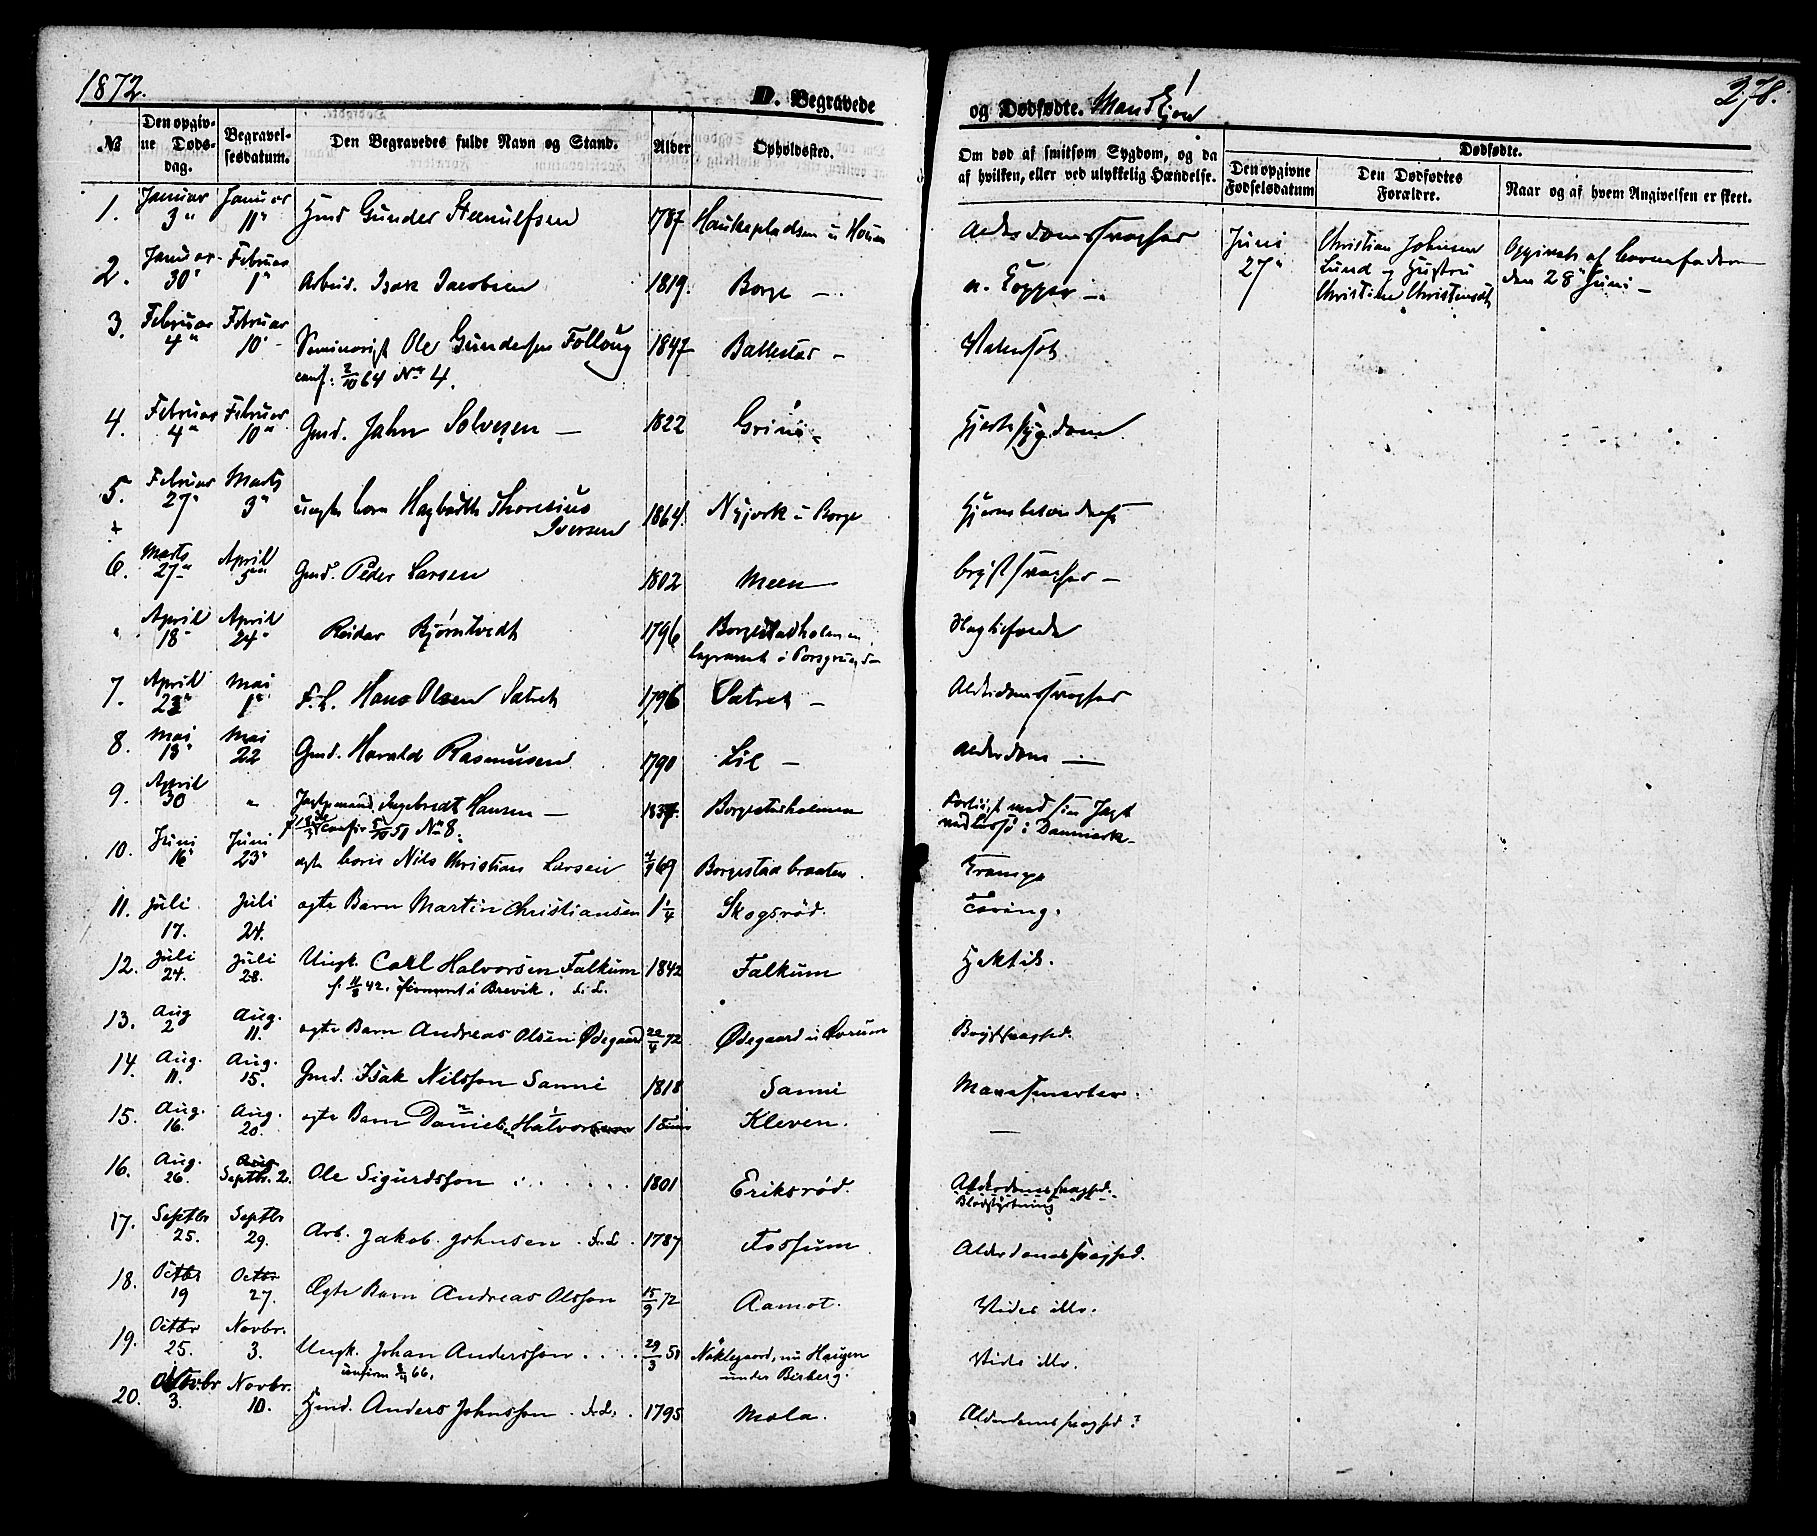 1872.
D. Begravede
og Dødfødte. Mandkjøn
278.
№ Den opgivne Døds-dag. Begravelsesdatum. Den Begravedes fulde Navn og Stand. Alder Opholdssted. Om død af smitsom Sygdom, og da af hvilken, eller ved ulykkelig Hændelse.
Dødfødte.
Den opgivne Fødselsdatum Den Dødfødtes Forældre. Naar og af hvem Angivelsen er skeet.
1. Januar 3" Januar 11" Hmd Gunder Steenulfsen 1787 Haukepladsen u Alderdomssvaghed
Juni 27" Christian Johnsen Lund og Hustru Christine Opgivet af barnefaderen den 28 Juni —
2. Januar 30" Februar 1" Arbeid. Isak Jacobsen 1819. Borge — n. Kopper —
3. Februar 4" Februar 10" Seminarist Ole Gundersen Follaug 1847 Ballestad —
conf: 2/10 64 No 4.
4. Februar 4" Februar 10" Gmd. Jahn Solvesen — 1822 Grini - Hjertesygdom
5. Februar 27" Marts 3" barn Hagbarth Thoresius Iversen 1864. Nyjork u Borge Hjernebetændelse
+
6. Marts 27" April 5" Gmd. Peder Larsen 1802 Meen brystsvaghed —
" April 18" April 24" Reidar Bjørntvedt 1796 Borgestadholmen Slagtilfælde
begravet i Porsgrund
7. April 23" Mai 1" F.L. Hans Olsen Sætret 1796 Sætret — Alderdomssvaghed
8. Mai 18" Mai 22 Gmd. Harald Rasmusen 1790 Lie — Alderdom —
9. April 30 " Ingebredt Hansen — Borgestadholmen Forliist med sin Jagt
No 8. i Danmark
10. Juni 16" Juni 23" ægte barn Nils Christian Larsen 69 Borgestadbraaten. Krampe
11. Juli 17. Juli 24. ægte Barn Martin Christiansen 1 1/4 Skogsrød. Tæring.
12. Juli 24. Juli 28. Ungk. Carl Halvorsen Falkum 1842 Falkum Hektik.
f. 11/8 42. i Brevik. F.L.
13. Aug 2 Aug. 11. ægte Barn Andreas Olsen Ødegaard 22/4 72 Ødegaard u Brystsvaghed.
14. Aug. 11. Aug. 15. Gmd. Isak Nilsson Sanni 1818 Sanni Mavesmerter.
15. Aug. 16. Aug. 20. ægte Barn Daniel Halvorsen Kleven. —
16. Aug. 26. Aug Septbr. 2. Ole Sigurdsson . . . . . . 1801 Eriksrød. Alderdomssvaghed.
Blodstyrtning
17. Septbr 25. Septbr 29. Arb. Jakob Johnsen . F.L. . 1787 Fossum Alderdomssvaghed.
18. Octbr 19 Octbr 27. Ægte Barn Andreas Olsson 15/9 72 Aamot. Vides ikke.
19. Octbr 25. Novbr. 3. Ungk. Johan Andersson . . . . 29/3 50 Nøklegaard, nu Haugen Vides ikke.
66. under Bærberg.
20. Novbr 3. Novbr. 10. Hmd. Anders Johnsson . F.L. . 1795 Mæla. Alderdomssvaghed?